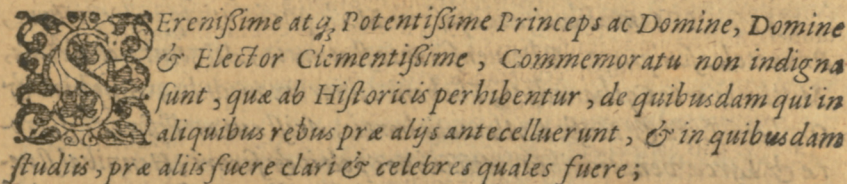 SErenißime atqꝫ Potentißime Princeps ac Domine, Domine
& Elector Clementißime, Commemoratu non indigna
ſunt, quæ ab Hiſtoricis perhibentur, de quibusdam qui in
aliquibus rebus præ alijs antecelluerunt, & in quibusdam
ſtudiis, præ aliis fuere clari & celebres quales fuere;